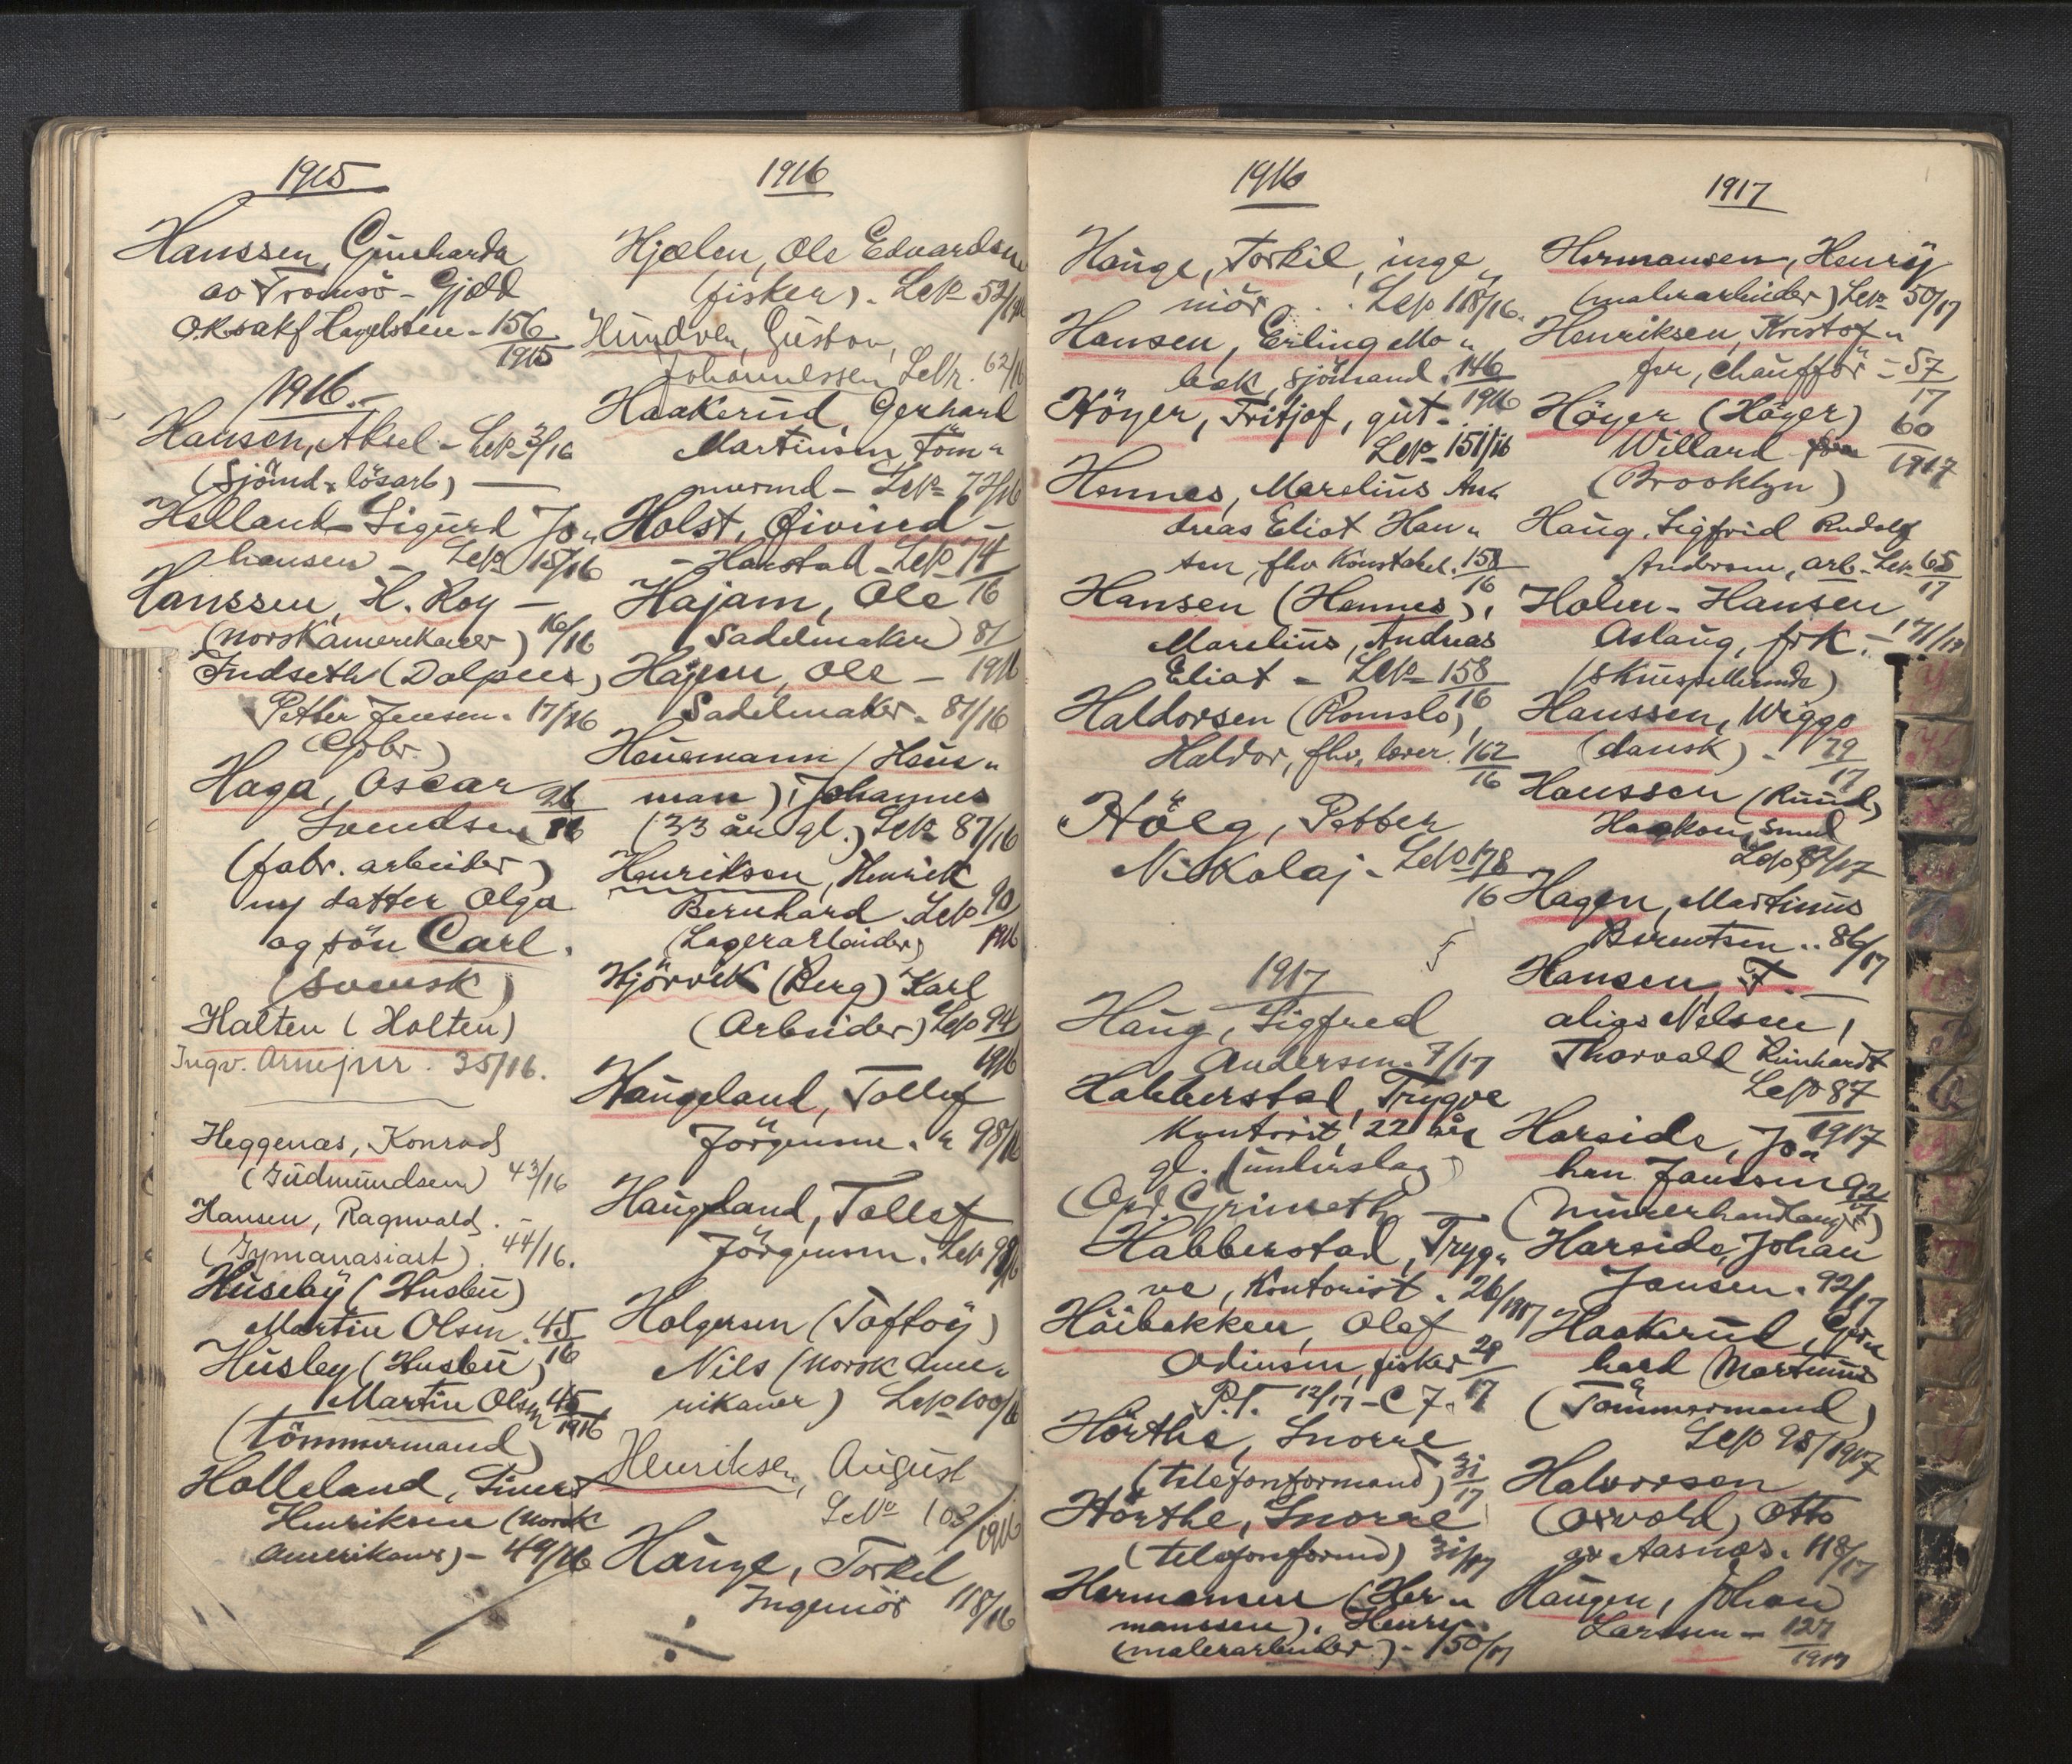 1915
Hanssen, Gunharda
av Tromsö - Gjæld
O.K. sakf. Hagelsteen - 156
1915
1916.-
Hansen, Aksel - Lep 3/16
(Sjömd - lösarb)
Helland Sigurd Jo"
hansen - Lep 15/16
Hanssen, H. Roy -
(norskamerikaner) 16/16
Indseth (Dolpens)
Petter Jensen. 17/16
(Gbr.)
Haga, Oscar 26
Svendsen 16
(fabr. arbeider)
og datter Olga
og sön Carl.
(svensk)
Halten (Holten)
Ingv. Arnejur. 35/16.
Heggenæs, Konrad
(Gudmundsen) 43/16
Hansen, Ragnvald. -
(Gymanasiast). 44/16.
Huseby (Husbu)
Martin Olsen. 45
16
Husley (Husbu)
Martin Olsen 45
1916
(tömmermand)
Holleland, Sivert
Henriksen (norsk
amerikaner) - 49/16
1916
Hjælen, Ole Edvardsen
(fisker). Lep 52/16
Hundven, Gustav,
Johannessen Lnr. 62/16
Haakerud, Gerhard
Martinsen, töm"
mermd - Lep 72/16
Holst, Øivind -
- Harstad - Lep 74
16
Hajam, Ole
Sadelmaker) 81
1916
Hajem, Ole -
Sadelmaker. 81/16
Hausmann (Haus"
man), Johannes
(33 år gl.) Lep 87/16
Henriksen, Henrik
Bernhard. Lep 90
(Lagerarbeider) 1916
Hjörvik (Berg) Karl
(Arbeider) Lep 94
1916
Haugeland, Tollef
Jörgensen. " 98/16
Haugland, Tollef
Jörgensen. Lep 98/16
Holgersen (Toftöy)
Nils (norsk ame"
rikaner) Lep 100/16
Henriksen, August
LNo 103/1916
Hauge, Torkel
Ingeniör 118/16
1916
Hauge, Torkil, inge"
niör . . Lep 118/16.
Hansen, Erling Mo"
bak, sjömand. 146
1916
Höyer, Fritjof, gut -
Lep 151/16
Hennes, Marelius An"
dreas Eliot Han"
sen, fhv. Konstabel. 158
16
Hansen (Hennes),
Marelius, Andreas
Eliot - Lep 158
16
Haldorsen (Romslo),
Haldor, fhv. lærer. 162
16
Hölg, Petter
Nikolaj - Lep 178
16
1917
Haug, Sigfred
Andersen. 7/17
Habberstad, Trygve
Kontorist 22 år
gl. (underslag)
(Opd. Grimseth -
Habberstad, Tryg"
ve, Kontorist. 26/1917
Höibakken, Olaf
Odinsen, fisker 29
P.T. 12/17 - C 7. 17
Hörthe, Snorre
(telefonformand) 31
17
Hörthe, Snorre
(telefonformd) 31/17
Hermansen (Her"
manssen). Henry.
(malerarbeider). - 50/17
1917
Hermansen, Henry
(malerarbeider) Lep 50/17
Henriksen, Kristof"
fer, chaufför - 57
17
Höyer (Häyer) 60
Willard fra 1917
(Brooklyn)
Haug, Sigfrid Rudolf
Andersen, arb. Lep 65
17
Holm-Hansen
Aslaug, frk. - 171/17
(Skuespillerinde)
Hanssen, Wiggo
(dansk) - 79
17
Hanssen (Ruud)
Haakon, smed
Lep 82/17
Hagen, Martinus
Berntsen .. 86/17
Hansen, F. -
alias Nelsen,
Thorvald Reinhardt
Lep 87
1917
Harside, Jo"
han Janssen 92
17
(Murerhandlanger)
Harside, Johan
Jansen. 92/17
Haakerud, Ger"
hard Martinus
(Tömmermand)
Lep 98/1917
Halvorsen
(Osvold) Otto
av Aasnæs. 118/17
Haugen, Johan
Larssen - 127
1917